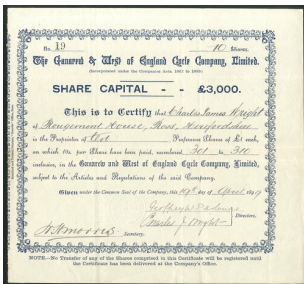 No. 19 10 Shares.
The Gamored & West of England Cycle Company, Limited.
(Incorporated under the Companies Acts, 1862 to 1893)
SHARE CAPITAL - - £3,000.
This is to Certify that Charles James Wright
of House, Ross, Herefordshire
is the Proprietor of Preference Shares of £1 each,
on which per Share have been paid, numbered 301 to 310
inclusive, in the Gamored and West of England Cycle Company, Limited,
subject to the Articles and Regulations of the said Company.
Given under the Common Seal of the Company, this 19th day of April
Directors,
Charles J Wright
Secretary.
NOTE.—No Transfer of any of the Shares comprised in this Certificate will be registered until
the Certificate has been delivered at the Company's Office.